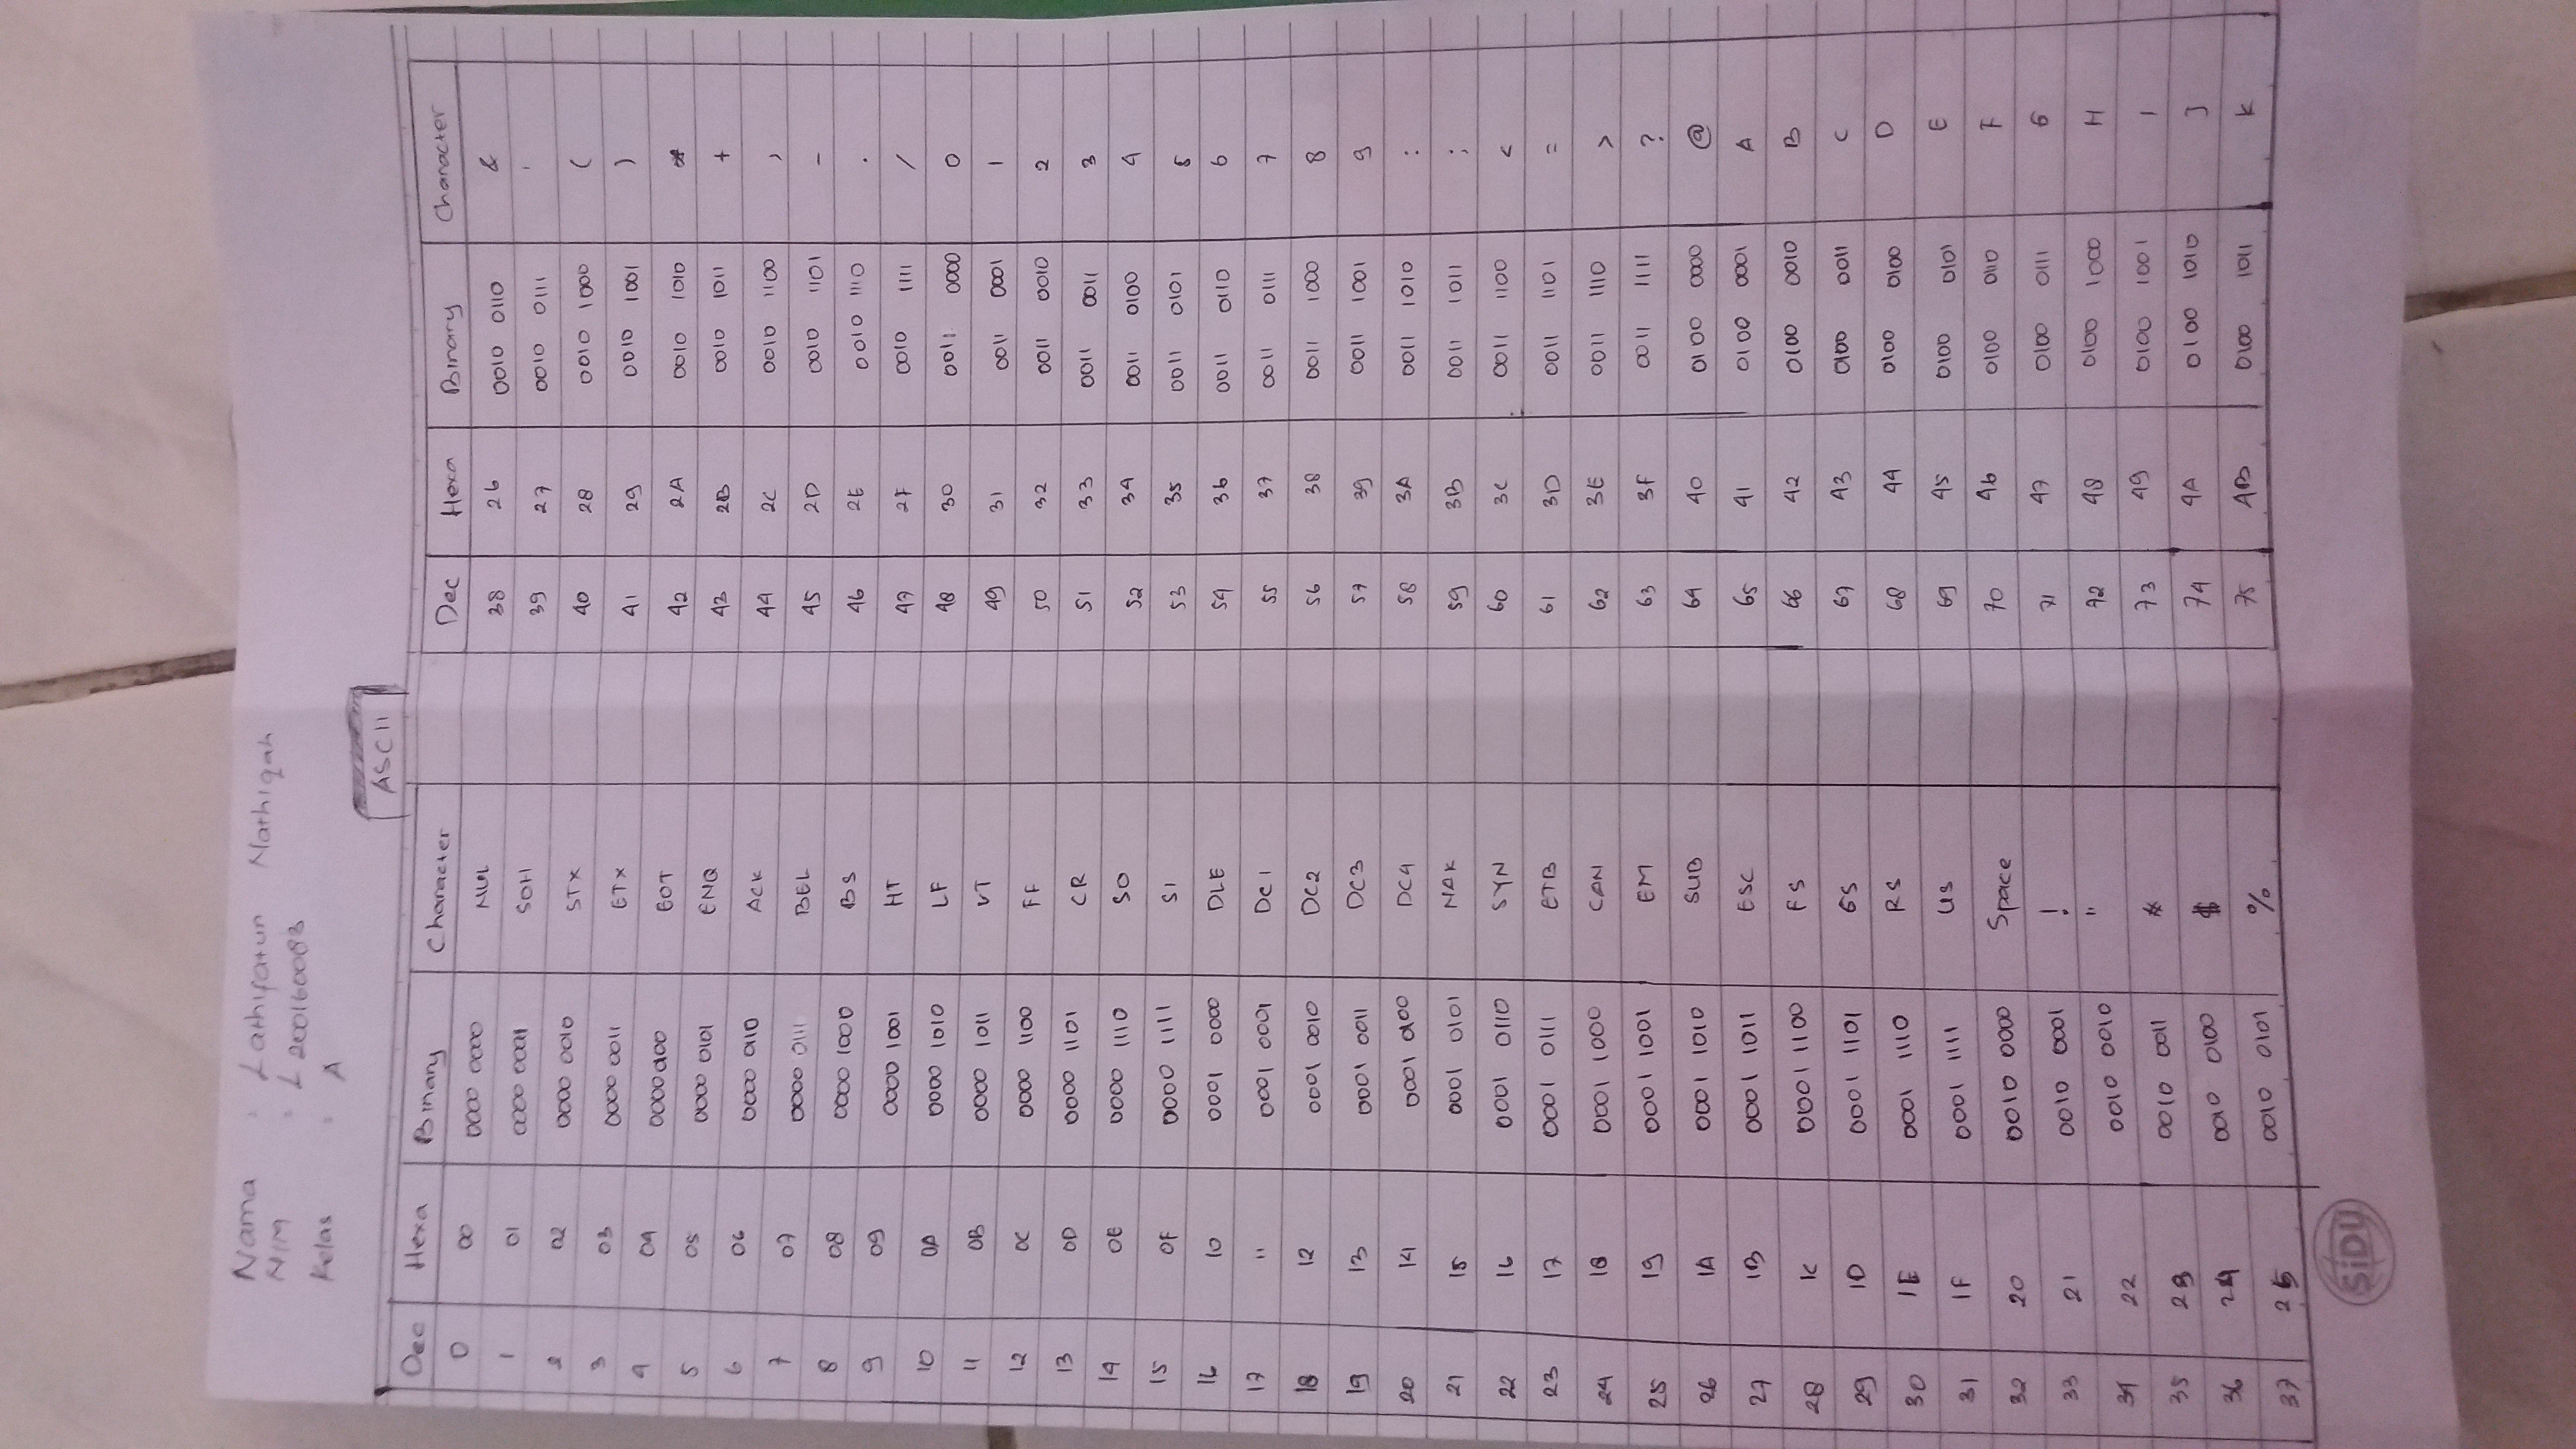 Nama : Lathifatun Nathiqah
NIM : L 200160083
Kelas : A
ASCII
Dec Hexa Binary Character
0 00 0000 0000 NUL
1 01 0000 0001 SOH
2 02 0000 0010 STX
3 03 0000 0011 ETX
4 04 0000 0100 EOT
5 05 0000 0101 ENQ
6 06 0000 0110 ACK
7 07 0000 0111 BEL
8 08 0000 1000 BS
9 09 0000 1001 HT
10 0A 0000 1010 LF
11 0B 0000 1011 VT
12 0C 0000 1100 FF
13 0D 0000 1101 CR
14 0E 0000 1110 SO
15 0F 0000 1111 SI
16 10 0001 0000 DLE
17 11 0001 0001 DC1
18 12 0001 0010 DC2
19 13 0001 0011 DC3
20 14 0001 0100 DC4
21 15 0001 0101 NAK
22 16 0001 0110 SYN
23 17 0001 0111 ETB
24 18 0001 1000 CAN
25 19 0001 1001 EM
26 1A 0001 1010 SUB
27 1B 0001 1011 ESC
28 1C 0001 1100 FS
29 1D 0001 1101 GS
30 1E 0001 1110 RS
31 1F 0001 1111 US
32 20 0010 0000 Space
33 21 0010 0001 !
34 22 0010 0010 "
35 23 0010 0011 #
36 24 0010 0100 $
37 25 0010 0101 %
Dec Hexa Binary Character
38 26 0010 0110 &
39 27 0010 0111 '
40 28 0010 1000 (
41 29 0010 1001 )
42 2A 0010 1010 *
43 2B 0010 1011 +
44 2C 0010 1100 ,
45 2D 0010 1101 -
46 2E 0010 1110 .
47 2F 0010 1111 /
48 30 0011 0000 0
49 31 0011 0001 1
50 32 0011 0010 2
51 33 0011 0011 3
52 34 0011 0100 4
53 35 0011 0101 5
54 36 0011 0110 6
55 37 0011 0111 7
56 38 0011 1000 8
57 39 0011 1001 9
58 3A 0011 1010 :
59 3B 0011 1011 ;
60 3C 0011 1100 <
61 3D 0011 1101 =
62 3E 0011 1110 >
63 3F 0011 1111 ?
64 40 0100 0000 @
65 41 0100 0001 A
66 42 0100 0010 B
67 43 0100 0011 C
68 44 0100 0100 D
69 45 0100 0101 E
70 46 0100 0110 F
71 47 0100 0111 G
72 48 0100 1000 H
73 49 0100 1001 I
74 4A 0100 1010 J
75 4B 0100 1011 K
SiDU